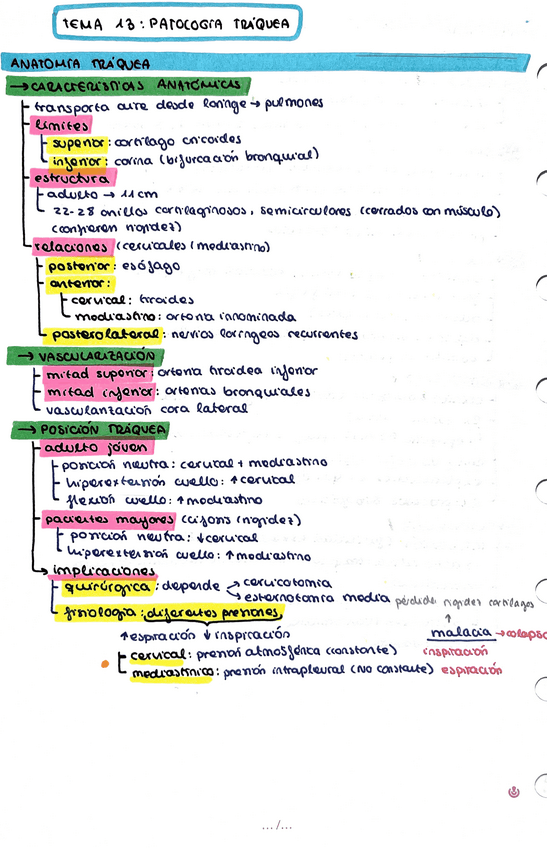 TEMA 13: PATOLOGÍA TRÁQUEA
ANATOMÍA TRÁQUEA
→ CARACTERÍSTICAS ANATÓMICAS
transporta aire desde laringe → pulmones
límites
superior: cartílago cricoides
inferior: carina (bifurcación bronquial)
estructura
adulto → 11 cm
22-28 anillos cartilaginosos, semicirculares (cerrados con músculo)
(confieren rigidez)
relaciones (cervicales / mediastino)
posterior: esófago
anterior:
cervical: tiroides
mediastino: arteria innominada
posterolateral: nervios laríngeos recurrentes
→ VASCULARIZACIÓN
mitad superior: arteria tiroidea inferior
mitad inferior: arterias bronquiales
vascularización cara lateral
→ POSICIÓN TRÁQUEA
adulto jóven
posición neutra: cervical + mediastino
hiperextensión cuello: ↑ cervical
flexión cuello: ↑ mediastino
pacientes mayores (cifosis (rigidez)
posición neutra: ↓ cervical
hiperextensión cuello: ↑ mediastino
implicaciones
quirúrgica: depende → cervicotomía
→ esternotomía media
fisiología: diferentes presiones
↑ espiración ↓ inspiración
cervical: presión atmosférica (constante)
mediastínico: presión intrapleural (no constante)
pérdida rigidez cartílagos
↑
malacia → colapso
inspiración
espiración
.../...